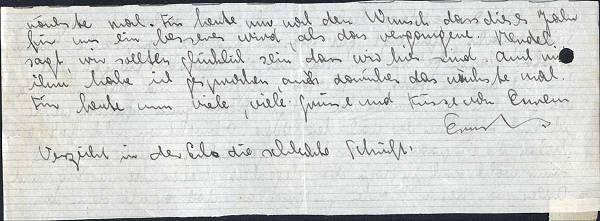 nächste mal. Für heute nur noch den Wunsch dass dieses Jahr
für uns ein besseres wird, als das vergangene. Mendel
sagt, wir sollten glücklich sein dass wir hier sind. Auch mit
ihm habe ich gesprochen, auch darüber das nächste mal.
Für heute nun viele, viele Grüsse und Küsse von Eurem
Ernst
Verzeiht in der Eile die schlechte Schrift.